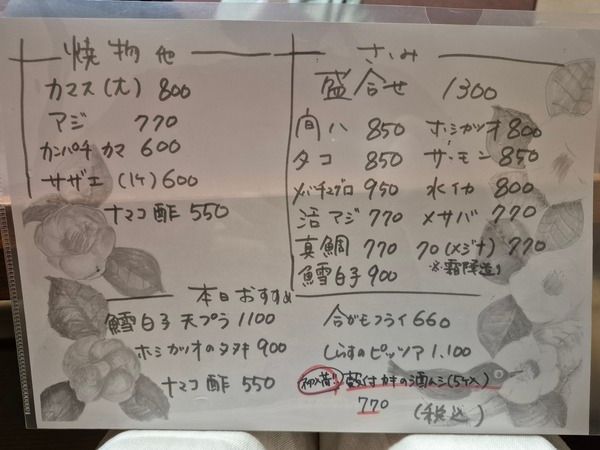 焼物他
カマス(大) 800
アジ 770
カンパチ カマ 600
サザエ (1ヶ) 600
ナマコ酢 550
さしみ
盛合せ 1300
間ハ 850
タコ 850
メバチマグロ 950
活アジ 770
真鯛 770
鱈白子 900
ホシガツオ 800
サーモン 850
水イカ 800
〆サバ 770
クロ(メジナ) 770
※霜降造り
本日おすすめ
鱈白子 天プラ 1100
ホシガツオのタタキ 900
ナマコ酢 550
合がもフライ 660
しらすのピッツア 1.100
殻付カキの酒ムシ(5ケ入)
770
(税込)